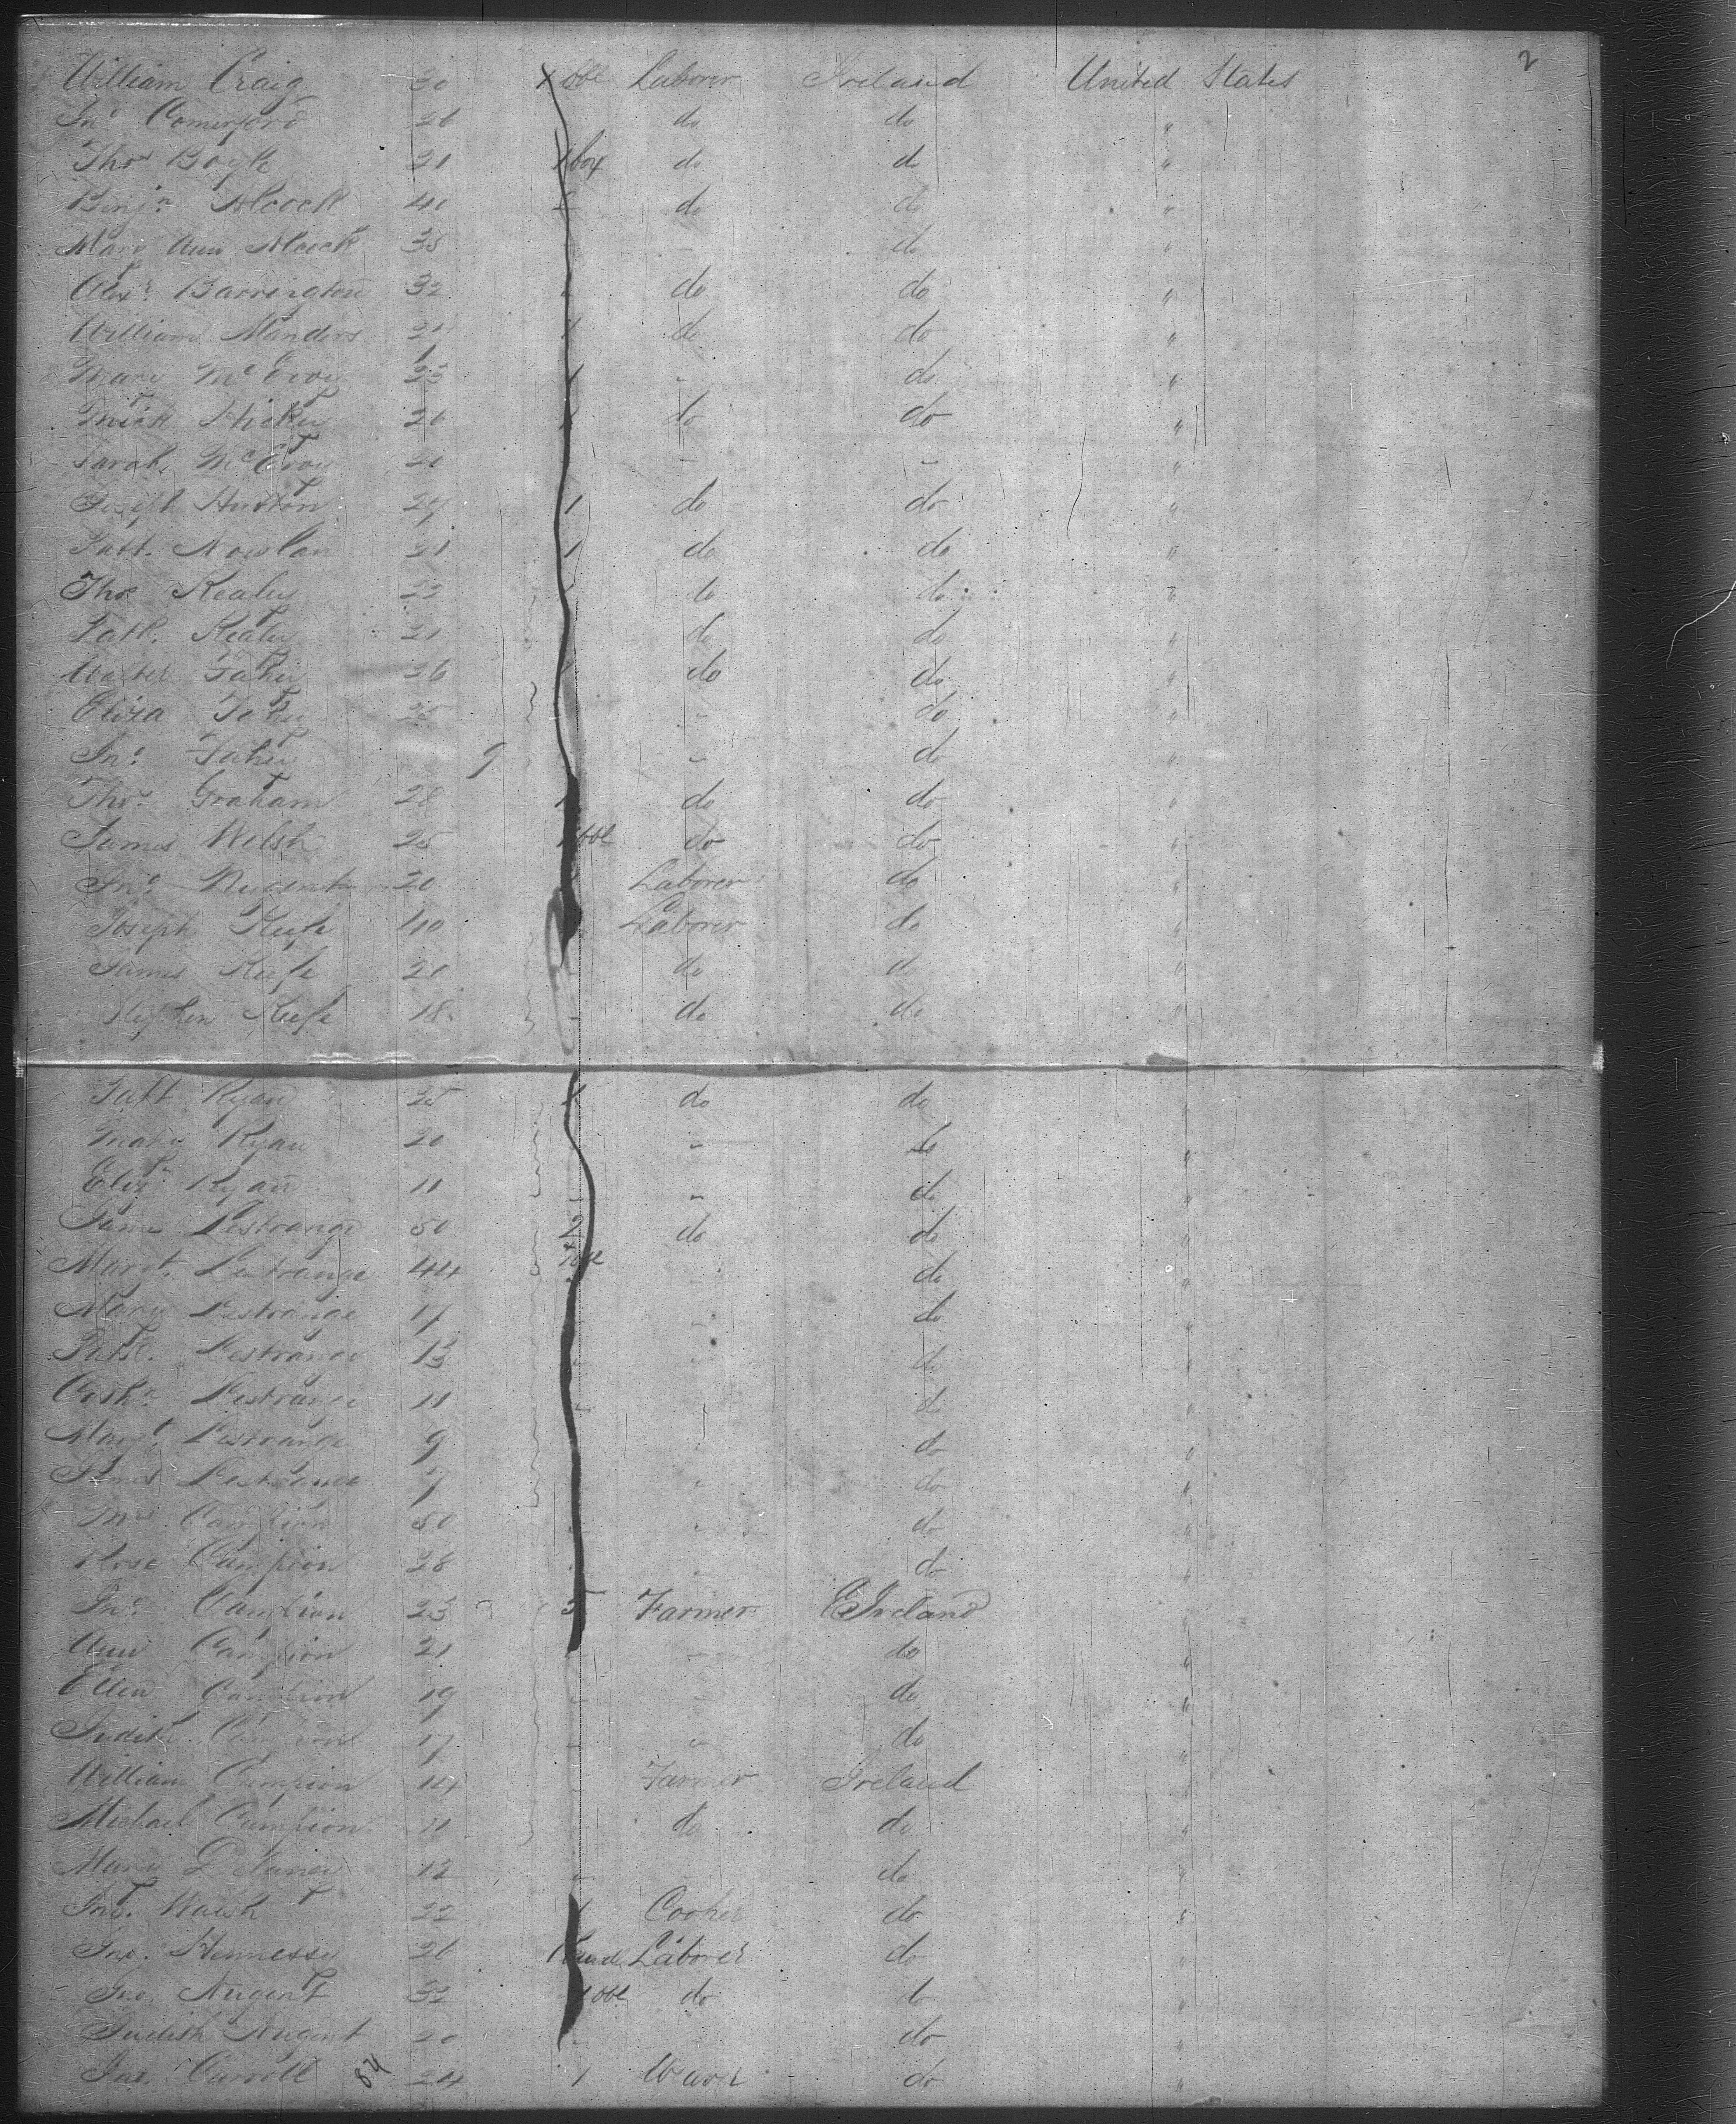 2
William Craig 30 1 bbl Laborer Ireland United States
Jno Comerford 26 do do "
Thos Boyle 21 1 box do do "
Benjn Alcock 40 do do "
Mary Ann Alcock 35 - do "
Alexr Barrington 32 " do do "
William Manders 24 1 do do "
Mary McEvoy 23 1 - do "
Mick Hickey 26 1 do do "
Sarah McEvoy 21 - - "
Joseph Huston 24 1 do do "
Patt. Nowlan 21 1 do do "
Thos Kealey 23 1 do do "
Patk. Kealey 21 do do "
Walter Fahey 26 1 do do "
Eliza Fahey 25 - do "
Jno. Fahey 9 - do "
Thos. Graham 28 1 do do "
James Welsh 25 1 bbl do do "
Jno. Nugent 20 Laborer do "
Joseph Keefe 40 Laborer do "
James Keefe 21 - do do "
Stephen Keefe 18 - do do "
Patt Ryan 25 1 do do "
Mary Ryan 20 - do "
Eliz. Ryan 11 - - do "
James Lestrange 50 2 do do "
Margt. Lestrange 44 1 bbl - do "
Mary Lestrange 17 - do "
Patk. Lestrange 13 - - do "
Cathn Lestrange 11 - do "
Margt. Lestrange 9 - do "
James Lestrange 7 - do "
Mrs Campion 50 - - do "
Rose Campion 28 - - do "
Jno. Campion 23 3 Farmer Ireland "
Ann Campion 21 - - do "
Ellen Campion 19 - - do "
Judith Campion 17 - - do "
William Campion 14 - Farmer Ireland "
Michael Campion 11 do do "
Mary Delaney 12 - do "
Jno. Walsh 22 1 Cooper do "
Jno. Hennessy 26 Laborer do "
Jno. Nugent 32 1 bbl do do "
Judith Nugent 20 - - do "
Jno. Carroll 84 24 1 Weaver do "